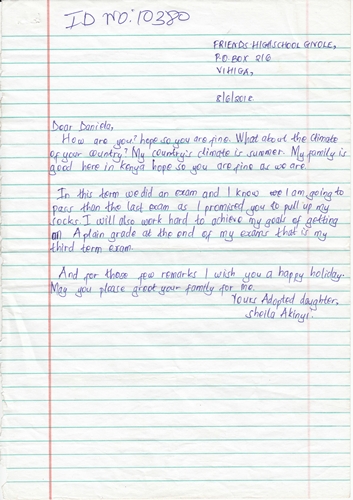 ID NO: 10380
FRIENDS HIGHSCHOOL GIVOLE,
P.O. BOX 216
VIHIGA,
8/6/2012
Dear Daniela,
How are you? hope so you are fine. What about the climate
of your country? My country's climate is summer. My family is
good here in Kenya hope so you are fine as we are.
In this term we did an exam and I know we I am going to
pass than the last exam as I promised you to pull up my
socks. I will also work hard to achieve my goals of getting
A plain grade at the end of my exams that is my
third term exam.
And for those few remarks I wish you a happy holiday.
May you please greet your family for me.
Yours Adopted daughter,
Sheila Akinyi.